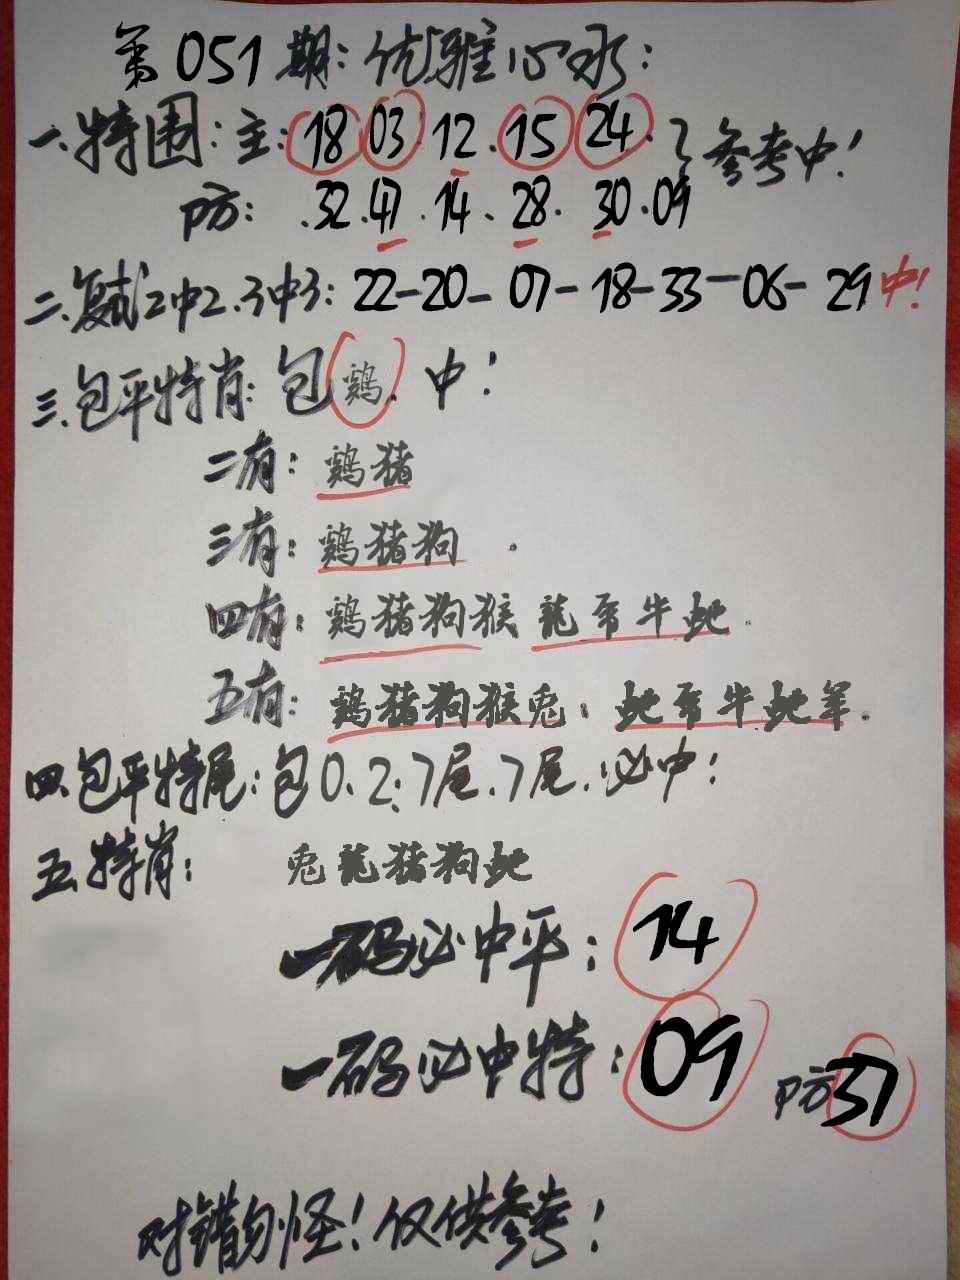 第051期:优雅心水:
一.特围:主:18.03.12.15.24.参考中!
防:.32.47.14.28.30.09
二.复式2中2.3中3:22-20-07-18-33-06-29中!
三.包平特肖:包鸡.中!
二有:鸡猪
三有:鸡猪狗.
四有:鸡猪狗猴龍 牛蛇.
五有:鸡猪狗猴兔:蛇 牛蛇羊.
四.包平特尾:包0.2:7尾.7尾.必中:
五.特肖:兔龍猪狗蛇
一码必中平:14
一码必中特:09 防37
对错勿怪!仅供参考!